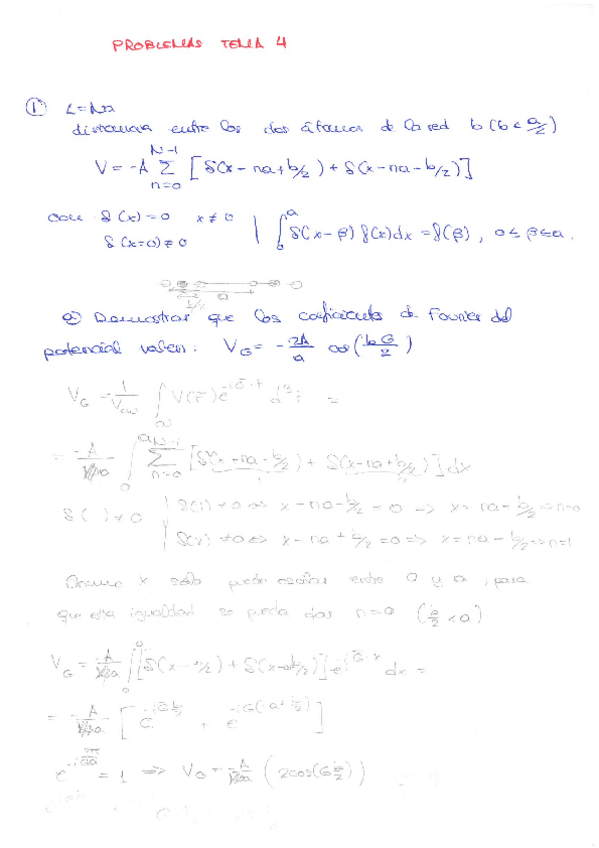 PROBLEMAS TEMA 4
① L=Na
distancia entre los dos átomos de la red b (b < a/2)
N-1
V = -A Σ [δ(x - na + b/2) + δ(x - na - b/2)]
n=0
con δ(x) = 0 x ≠ 0 | ∫₀ᵃ δ(x - β) f(x) dx = f(β), 0 ≤ β ≤ a.
δ(x=0) ≠ 0
a
a) Demostrar que los coeficientes de Fourier del
potencial valen: V_G = - 2A/a cos(bG/2)
V_G = 1/V ∫ V(r) e^(-iG·r) d³r =
= -A ∫₀ᵃ Σ [δ(x - na - b/2) + δ(x - na + b/2)] dx
δ( ) ≠ 0 | δ(1) ≠ 0 ⇔ x - na - b/2 = 0 → x = na + b/2 ⇒ n=0
δ(2) ≠ 0 ⇔ x - na + b/2 = 0 ⇒ x = na - b/2 ⇒ n=1
Como x solo puede oscilar entre 0 y a, para
que esta igualdad se pueda dar n=0 (b/2 < a)
V_G = -A ∫ [δ(x - b/2) + δ(x - ] e^(-iG·x) dx =
= -A [ e , e^(-iG(a + b/2)) ]
= 1 ⇒ V_G = -A (2cos(G b/2))